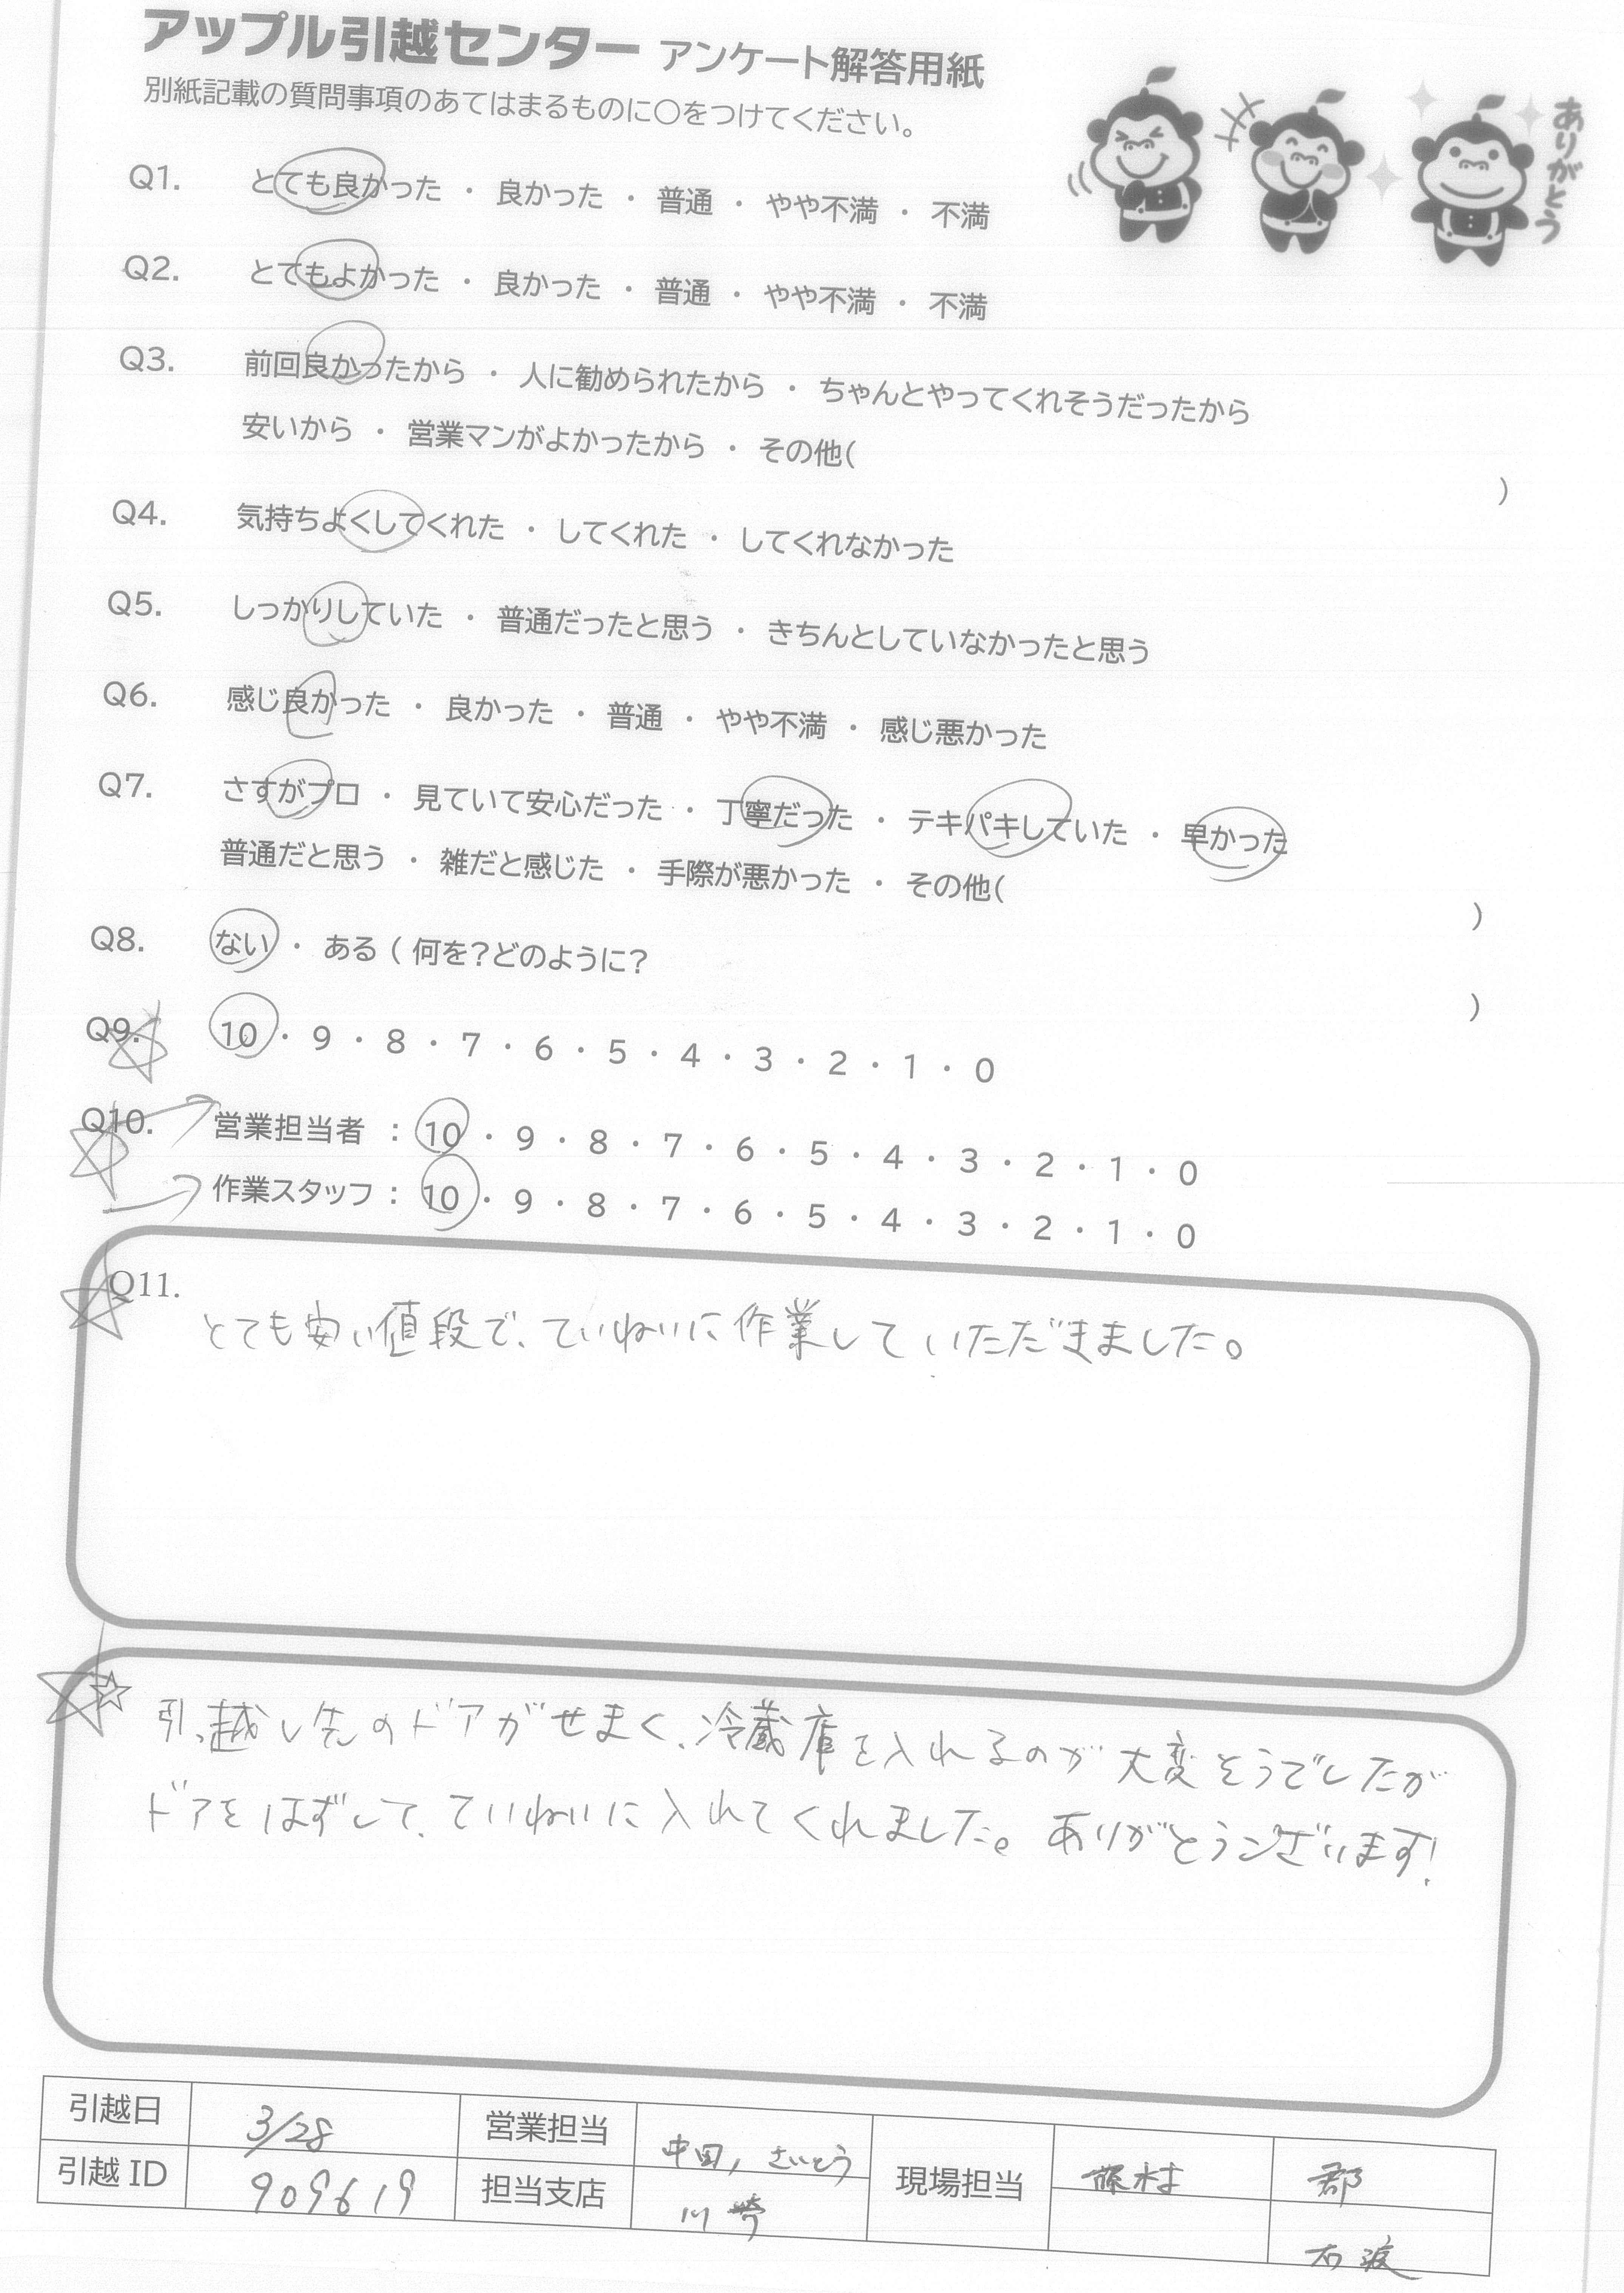 アップル引越センター アンケート解答用紙
別紙記載の質問事項のあてはまるものに○をつけてください。
ありがとう
Q1. とても良かった ・ 良かった ・ 普通 ・ やや不満 ・ 不満
Q2. とてもよかった ・ 良かった ・ 普通 ・ やや不満 ・ 不満
Q3. 前回良かったから ・ 人に勧められたから ・ ちゃんとやってくれそうだったから
安いから ・ 営業マンがよかったから ・ その他( )
Q4. 気持ちよくしてくれた ・ してくれた ・ してくれなかった
Q5. しっかりしていた ・ 普通だったと思う ・ きちんとしていなかったと思う
Q6. 感じ良かった ・ 良かった ・ 普通 ・ やや不満 ・ 感じ悪かった
Q7. さすがプロ ・ 見ていて安心だった ・ 丁寧だった ・ テキパキしていた ・ 早かった
普通だと思う ・ 雑だと感じた ・ 手際が悪かった ・ その他( )
Q8. ない ・ ある ( 何を?どのように? )
Q9. 10 ・ 9 ・ 8 ・ 7 ・ 6 ・ 5 ・ 4 ・ 3 ・ 2 ・ 1 ・ 0
Q10. 営業担当者 : 10 ・ 9 ・ 8 ・ 7 ・ 6 ・ 5 ・ 4 ・ 3 ・ 2 ・ 1 ・ 0
作業スタッフ : 10 ・ 9 ・ 8 ・ 7 ・ 6 ・ 5 ・ 4 ・ 3 ・ 2 ・ 1 ・ 0
Q11.
とても安い値段で、ていねいに作業していただきました。
☆
引っ越し先のドアがせまく、冷蔵庫を入れるのが大変そうでしたが
ドアをはずして、ていねいに入れてくれました。ありがとうございます!
引越日 3/28 営業担当 中田, さいとう 現場担当 藤村 郡
引越 ID 909619 担当支店 川崎 石渡